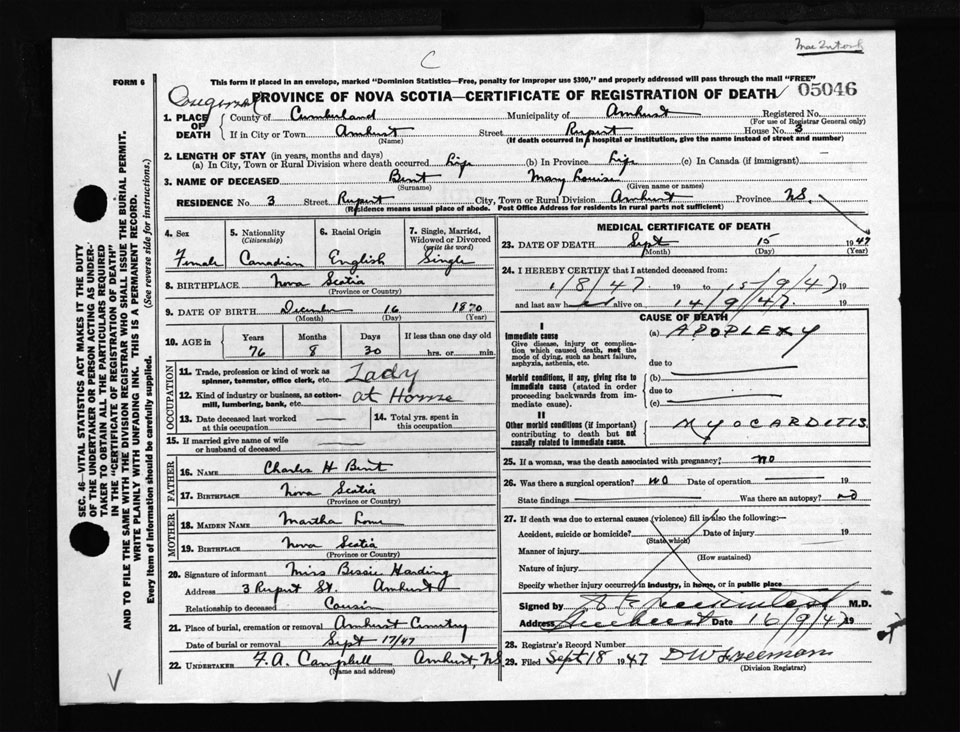 Mac Intosh
C
FORM 6
This form if placed in an envelope, marked "Dominion Statistics—Free, penalty for improper use $300," and properly addressed will pass through the mail "FREE"
PROVINCE OF NOVA SCOTIA—CERTIFICATE OF REGISTRATION OF DEATH 05046
1. PLACE OF DEATH County of Cumberland Municipality of Amherst Registered No.
(For use of Registrar General only)
If in City or Town Amherst Street Rupert House No. 3
(Name) (If death occurred in hospital or institution, give the name instead of street and number)
2. LENGTH OF STAY (in years, months and days)
(a) In City, Town or Rural Division where death occurred Life (b) In Province Life (c) In Canada (if immigrant)
3. NAME OF DECEASED Bent Mary Louise
(Surname) (Given name or names)
RESIDENCE No. 3 Street Rupert City, Town or Rural Division Amherst Province NS.
(Residence means usual place of abode. Post Office Address for residents in rural parts not sufficient)
4. Sex 5. Nationality (Citizenship) 6. Racial Origin 7. Single, Married, Widowed or Divorced (write the word)
Female Canadian English Single
8. BIRTHPLACE Nova Scotia
(Province or Country)
9. DATE OF BIRTH December 16 1870
(Month) (Day) (Year)
10. AGE in Years Months Days If less than one day old
76 8 30 hrs. or min.
OCCUPATION
11. Trade, profession or kind of work as spinner, teamster, office clerk, etc. Lady
12. Kind of industry or business, as cotton-mill, lumbering, bank, etc. at Home
13. Date deceased last worked at this occupation
14. Total yrs. spent in this occupation
15. If married give name of wife or husband of deceased
FATHER
16. NAME Charles H Bent
17. BIRTHPLACE Nova Scotia
(Province or Country)
MOTHER
18. MAIDEN NAME Martha
19. BIRTHPLACE Nova Scotia
(Province or Country)
20. Signature of informant Miss Bessie Harding
Address 3 Rupert St. Amherst
Relationship to deceased Cousin
21. Place of burial, cremation or removal Amherst Cemetery
Date of burial or removal Sept 17/47
22. UNDERTAKER F. A. Campbell Amherst NS
(Name and address)
MEDICAL CERTIFICATE OF DEATH
23. DATE OF DEATH Sept 15 1947
(Month) (Day) (Year)
24. I HEREBY CERTIFY that I attended deceased from:
1/8/47 19 to 15/9/47 19
and last saw her alive on 14/9/47. 19
CAUSE OF DEATH
I
Immediate cause (a) APOPLEXY
Give disease, injury or complication which caused death, not the mode of dying, such as heart failure, asphyxia, asthenia, etc.
due to
Morbid conditions, if any, giving rise to immediate cause (stated in order proceeding backwards from immediate cause).
(b)
due to
(c)
II
Other morbid conditions (if important) contributing to death but not causally related to immediate cause.
MYOCARDITIS
25. If a woman, was the death associated with pregnancy? no
26. Was there a surgical operation? NO Date of operation
State findings Was there an autopsy? no
27. If death was due to external causes (violence) fill in also the following:—
Accident, suicide or homicide? Date of injury 19
(State which)
Manner of injury
(How sustained)
Nature of injury
Specify whether injury occurred in industry, in home, or in public place
Signed by M.D.
Address Amherst Date 16/9/47 19
28. Registrar's Record Number
29. Filed Sept 18 1947 D W Freeman
(Division Registrar)
SEC. 46—VITAL STATISTICS ACT MAKES IT THE DUTY
OF THE UNDERTAKER OR PERSON ACTING AS UNDER-
TAKER TO OBTAIN ALL THE PARTICULARS REQUIRED
IN THE "CERTIFICATE OF REGISTRATION OF DEATH"
AND TO FILE THE SAME WITH THE DIVISION REGISTRAR WHO SHALL ISSUE THE BURIAL PERMIT.
WRITE PLAINLY WITH UNFADING INK. THIS IS A PERMANENT RECORD.
Every item of Information should be carefully supplied. (See reverse side for instructions.)
V